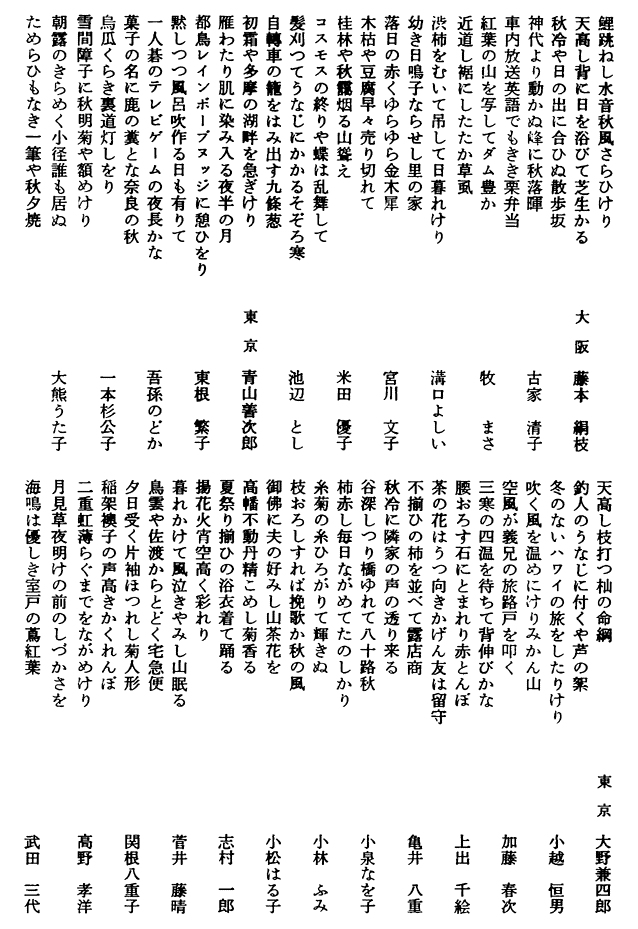 鯉跳ねし水音秋風さらひけり
天高し背に日を浴びて芝生かる
大阪 藤本 絹枝
秋冷や日の出に合ひぬ散歩坂
神代より動かぬ峰に秋落暉
古家 清子
車内放送英語でもきき栗弁当
紅葉の山を写してダム豊か
牧 まさ
近道し裾にしたたか草虱
渋柿をむいて吊して日暮れけり
溝口よしい
幼き日鳴子ならせし里の家
落日の赤くゆらゆら金木犀
宮川 文子
木枯や豆腐早々売り切れて
桂林や秋靄烟る山聳え
米田 優子
コスモスの終りや蝶は乱舞して
髪刈つてうなじにかかるそぞろ寒
池辺 とし
自轉車の籠をはみ出す九條葱
初霜や多摩の湖畔を急ぎけり
東京 青山善次郎
雁わたり肌に染み入る夜半の月
都鳥レインボーブヌッジに憩ひをり
東根 繁子
黙しつつ風呂吹作る日も有りて
一人碁のテレビゲームの夜長かな
吾孫のどか
菓子の名に鹿の糞とな奈良の秋
烏瓜くらき裏道灯しをり
一本杉公子
雪間障子に秋明菊や額めけり
朝露のきらめく小径誰も居ぬ
大熊うた子
ためらひもなき一筆や秋夕焼
天高し枝打つ杣の命綱
東京 大野兼四郎
釣人のうなじに付くや芦の絮
冬のないハワイの旅をしたりけり
小越 恒男
吹く風を温めにけりみかん山
空風が義兄の旅路戸を叩く
加藤 春次
三寒の四温を待ちて背伸びかな
腰おろす石にとまれり赤とんぼ
上出 千絵
茶の花はうつ向きかげん友は留守
不揃ひの柿を並べて露店商
亀井 八重
秋冷に隣家の声の透り来る
谷深しつり橋ゆれて八十路秋
小泉なを子
柿赤し毎日ながめてたのしかり
糸菊の糸ひろがりて輝きぬ
小林 ふみ
枝おろしすれば挽歌か秋の風
御佛に夫の好みし山茶花を
小松はる子
高幡不動丹精こめし菊香る
夏祭り揃ひの浴衣着て踊る
志村 一郎
揚花火宵空高く彩れり
暮れかけて風泣きやみし山眠る
菅井 藤晴
鳥雲や佐渡からとどく宅急便
夕日受く片袖ほつれし菊人形
関根八重子
稲架襖子の声高きかくれんぼ
二重虹薄らぐまでをながめけり
高野 孝洋
月見草夜明けの前のしづかさを
海鳴は優しき室戸の蔦紅葉
武田 三代